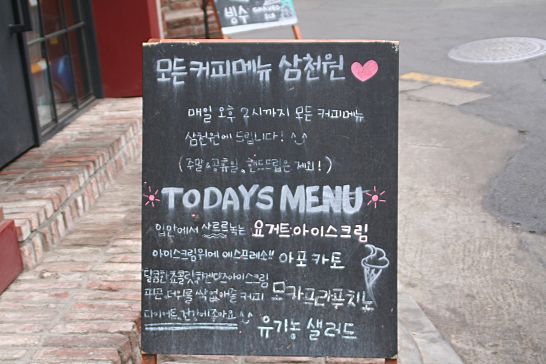 빙수
모든커피메뉴 삼천원
매일 오후 2시까지 모든 커피메뉴
삼천원에 드립니다!
(주말&공휴일, 핸드드립은 제외!)
TODAYS MENU
입안에서 사르륵녹는 요거트아이스크림
아이스크림위에 에스프레소!! 아포카토
달콤한쵸콜릿칩
피곤 더위를 싹 없애줄 커피 모카프라푸치노
다이어트, 건강에좋아요 유기농샐러드